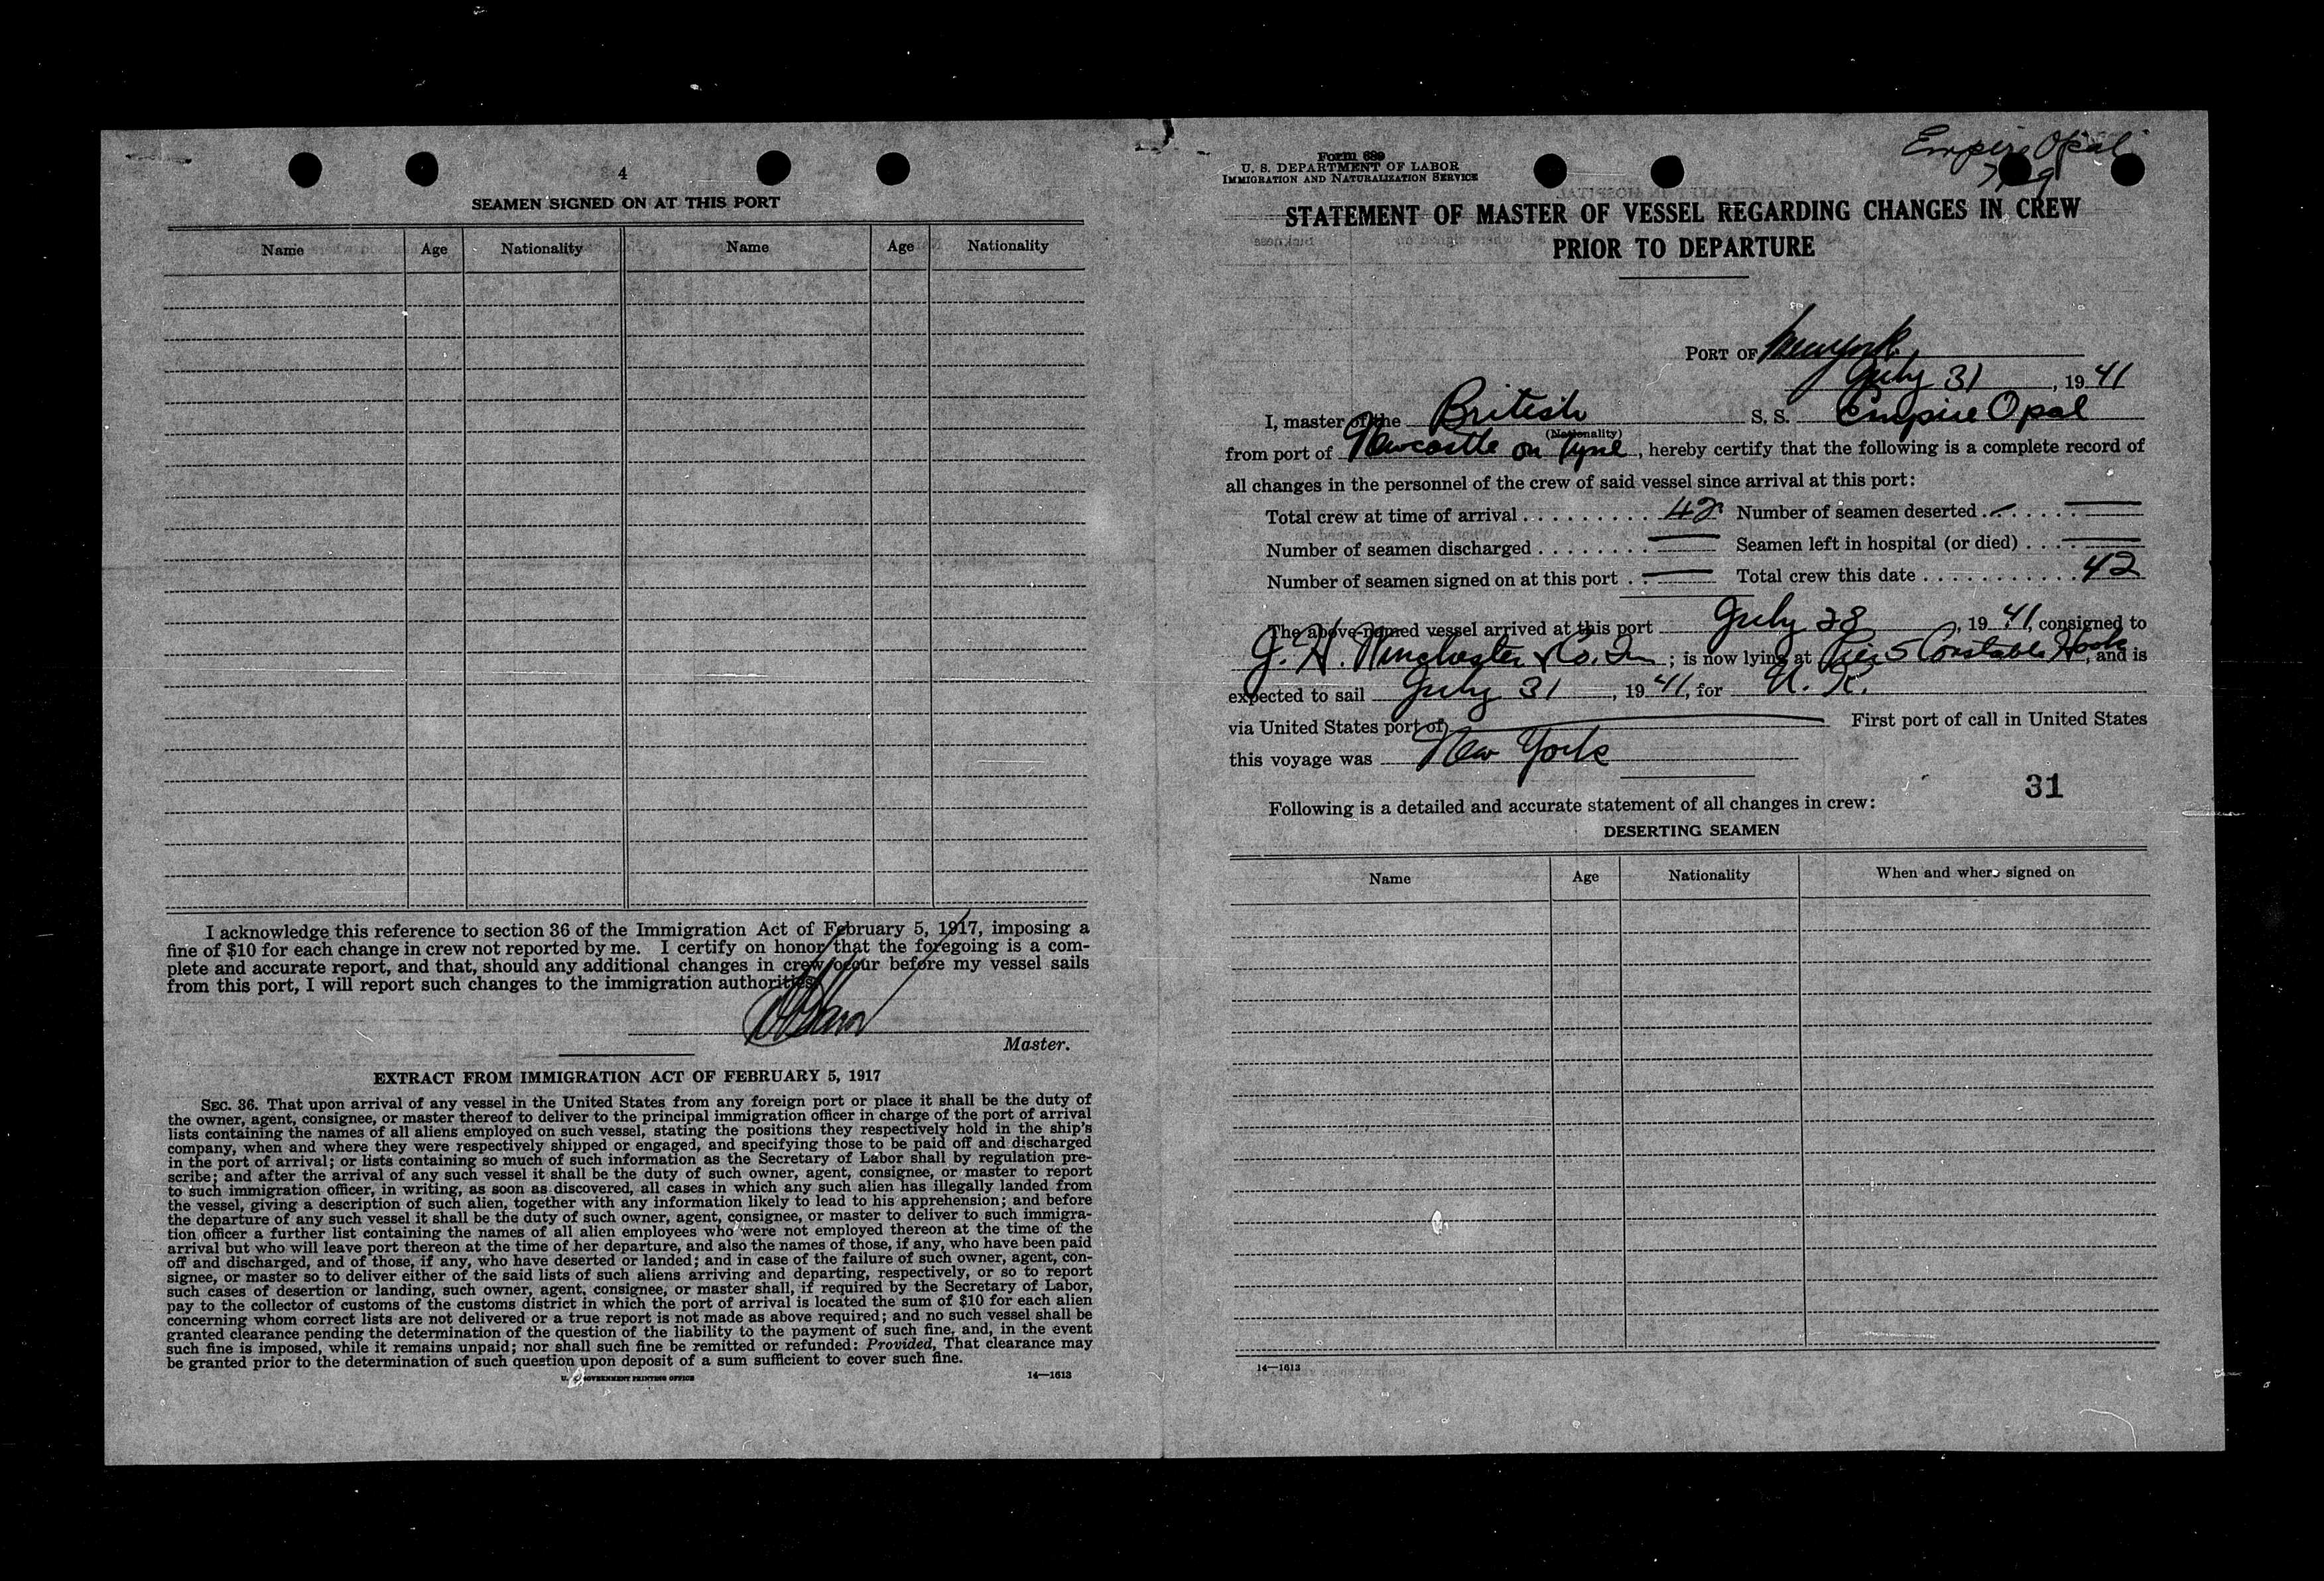 4
SEAMEN SIGNED ON AT THIS PORT
Name Age Nationality Name Age Nationality
I acknowledge this reference to section 36 of the Immigration Act of February 5, 1917, imposing a
fine of $10 for each change in crew not reported by me. I certify on honor that the foregoing is a com-
plete and accurate report, and that, should any additional changes in crew occur before my vessel sails
from this port, I will report such changes to the immigration authorities.
Master.
EXTRACT FROM IMMIGRATION ACT OF FEBRUARY 5, 1917
SEC. 36. That upon arrival of any vessel in the United States from any foreign port or place it shall be the duty of
the owner, agent, consignee, or master thereof to deliver to the principal immigration officer in charge of the port of arrival
lists containing the names of all aliens employed on such vessel, stating the positions they respectively hold in the ship's
company, when and where they were respectively shipped or engaged, and specifying those to be paid off and discharged
in the port of arrival; or lists containing so much of such information as the Secretary of Labor shall by regulation pre-
scribe; and after the arrival of any such vessel it shall be the duty of such owner, agent, consignee, or master to report
to such immigration officer, in writing, as soon as discovered, all cases in which any such alien has illegally landed from
the vessel, giving a description of such alien, together with any information likely to lead to his apprehension; and before
the departure of any such vessel it shall be the duty of such owner, agent, consignee, or master to deliver to such immigra-
tion officer a further list containing the names of all alien employees who were not employed thereon at the time of the
arrival but who will leave port thereon at the time of her departure, and also the names of those, if any, who have been paid
off and discharged, and of those, if any, who have deserted or landed; and in case of the failure of such owner, agent, con-
signee, or master so to deliver either of the said lists of such aliens arriving and departing, respectively, or so to report
such cases of desertion or landing, such owner, agent, consignee, or master shall, if required by the Secretary of Labor,
pay to the collector of customs of the customs district in which the port of arrival is located the sum of $10 for each alien
concerning whom correct lists are not delivered or a true report is not made as above required; and no such vessel shall be
granted clearance pending the determination of the question of the liability to the payment of such fine, and, in the event
such fine is imposed, while it remains unpaid; nor shall such fine be remitted or refunded: Provided, That clearance may
be granted prior to the determination of such question upon deposit of a sum sufficient to cover such fine.
U. S. GOVERNMENT PRINTING OFFICE 14—1613
Empire Opal
Form 689
U. S. DEPARTMENT OF LABOR
IMMIGRATION AND NATURALIZATION SERVICE
STATEMENT OF MASTER OF VESSEL REGARDING CHANGES IN CREW
PRIOR TO DEPARTURE
PORT OF New York,
July 31, 1941
I, master of the British S. S. Empire Opal
(Nationality)
from port of Newcastle on Tyne, hereby certify that the following is a complete record of
all changes in the personnel of the crew of said vessel since arrival at this port:
Total crew at time of arrival 42 Number of seamen deserted —
Number of seamen discharged — Seamen left in hospital (or died) —
Number of seamen signed on at this port — Total crew this date 42
The above-named vessel arrived at this port July 28, 1941, consigned to
J. H. Winchester & Co. ; is now lying at Pier 5 Constable Hook, and is
expected to sail July 31, 1941, for U. K.
via United States port of — First port of call in United States
this voyage was New York
31
Following is a detailed and accurate statement of all changes in crew:
DESERTING SEAMEN
Name Age Nationality When and where signed on
14—1613